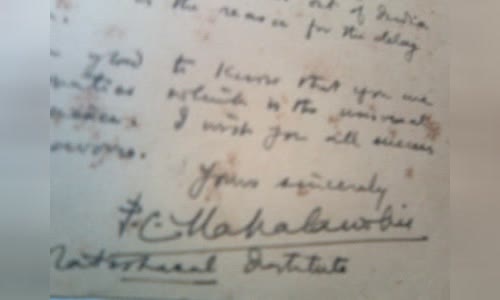 out of India
is the reason for the delay
glad to know that you are
which is the universal
I wish you all success
Yours sincerely
P.C. Mahalanobis
Institute